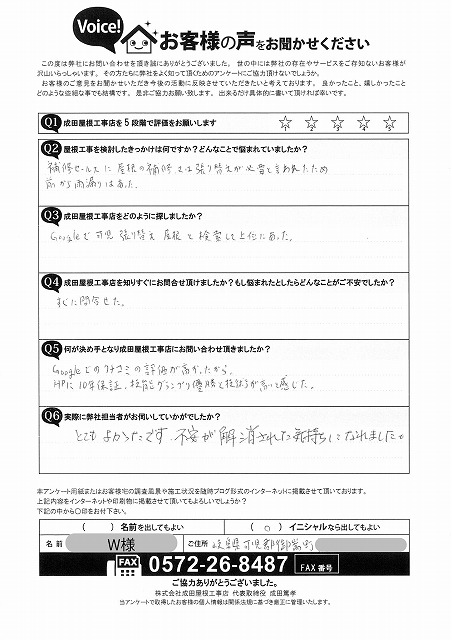 Voice!
お客様の声をお聞かせください
この度は弊社にお問い合わせを頂き誠にありがとうございました。世の中には弊社の存在やサービスをご存知ないお客様が
沢山いらっしゃいます。その方たちに弊社をよく知って頂くためのアンケートにご協力頂けないでしょうか。
お客様のご意見をお聞かせいただき今後の活動に反映させていただきたいと考えております。良かったこと、嬉しかったこと
どのような些細な事でも結構です。是非ご協力お願い致します。出来るだけ具体的に書いて頂ければ幸いです。
Q1 成田屋根工事店を5段階で評価をお願いします ☆ ☆ ☆ ☆ ☆
Q2 屋根工事を検討したきっかけは何ですか?どんなことで悩まれていましたか?
補修セールスに屋根の補修、又は張り替えが必要と言われたため
前から雨漏りはあった。
Q3 成田屋根工事店をどのように探しましたか?
Googleで可児 張り替え 屋根 と検索して上位にあった。
Q4 成田屋根工事店を知りすぐにお問合せ頂けましたか?もし悩まれたとしたらどんなことがご不安でしたか?
すぐに問合せた。
Q5 何が決め手となり成田屋根工事店にお問い合わせ頂きましたか?
Googleでのクチコミの評価が高かったから。
HPに10年保証、技能グランプリ優勝と技術が高いと感じた。
Q6 実際に弊社担当者がお伺いしていかがでしたか?
とてもよかったです。不安が解消された気持ちになれました。
本アンケート用紙またはお客様宅の調査風景や施工状況を随時ブログ形式のインターネットに掲載させて頂いております。
上記内容をインターネットや印刷物に掲載させて頂いてもよろしいでしょうか?
下記の中から〇印をお付け下さい。
( ) 名前を出してもよい ( ○ ) イニシャルなら出してもよい
名前 W様 ご住所 岐阜県可児郡御嵩町
FAX 0572-26-8487 FAX番号
ご協力ありがとうございました。
株式会社成田屋根工事店 代表取締役 成田篤孝
当アンケートで取得したお客様の個人情報は関係法規に基づき厳正に管理いたします。